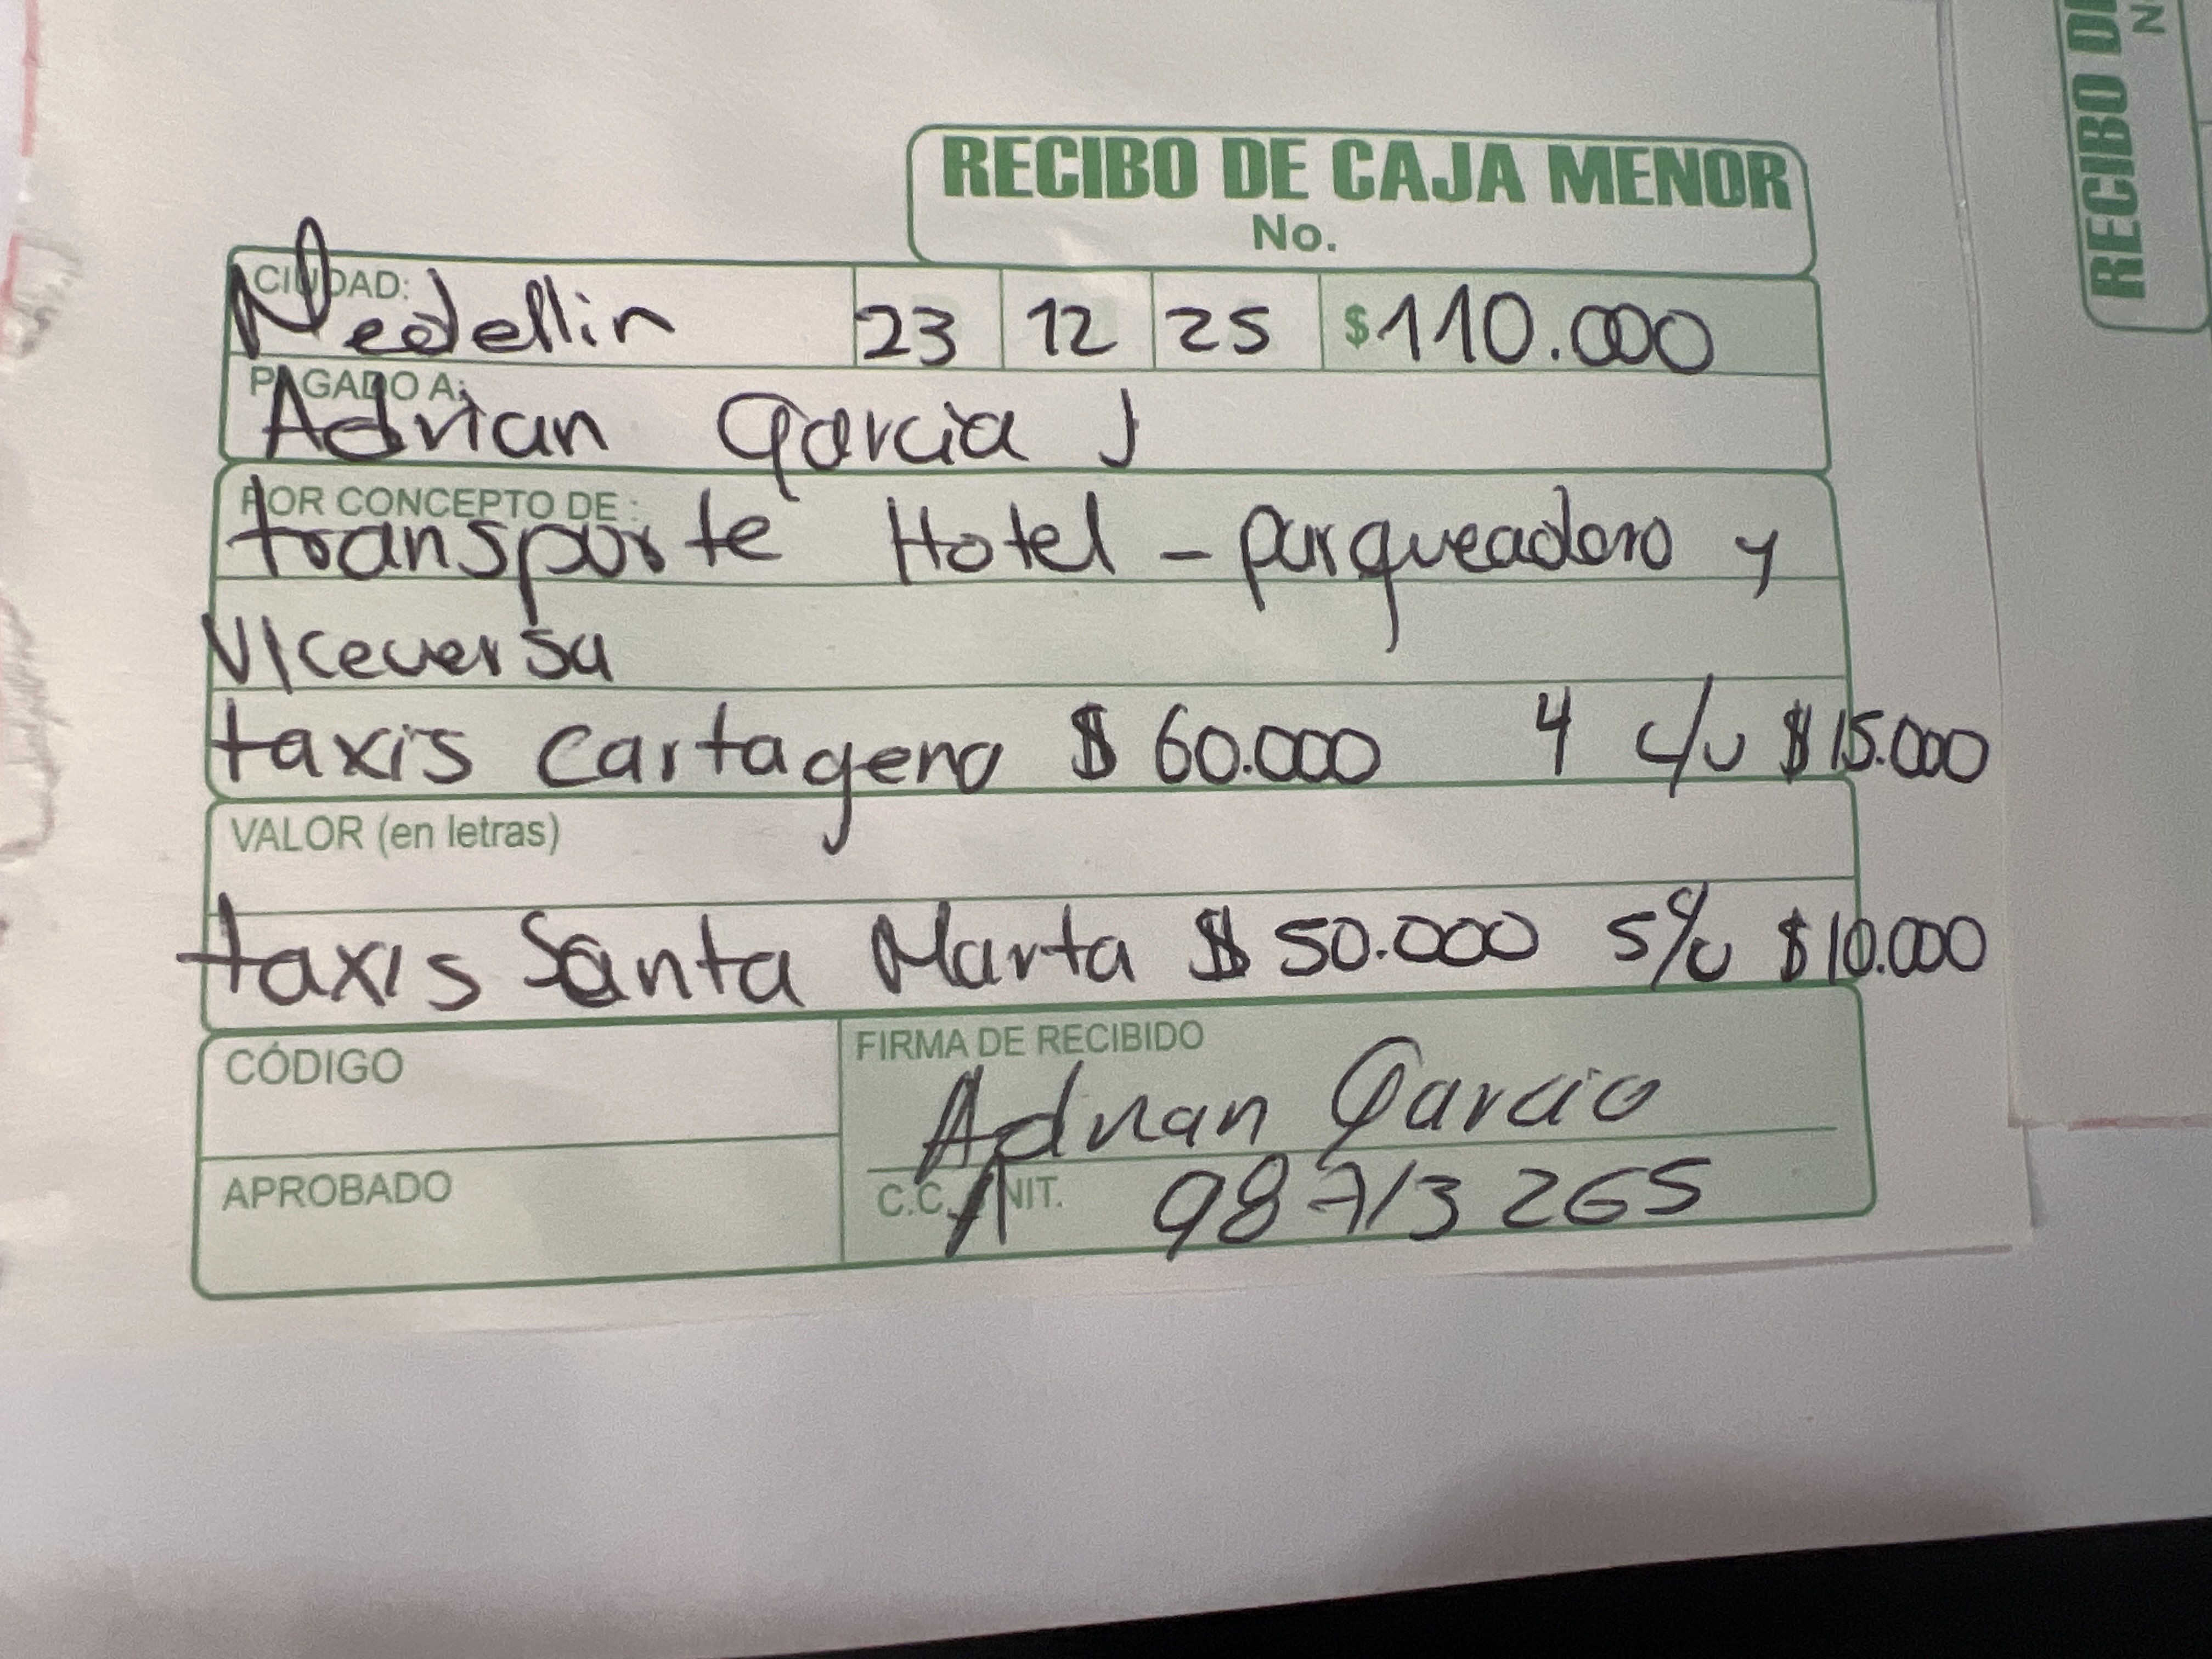 RECIBO DE CAJA MENOR
No.
CIUDAD: Medellin 23 12 25 $ 110.000
PAGADO A: Adrian Garcia J
POR CONCEPTO DE: transporte Hotel - parqueadero y
viceversa
taxis Cartagena $ 60.000 4 c/u $ 15.000
VALOR (en letras)
taxis Santa Marta $ 50.000 5 c/u $ 10.000
CÓDIGO
FIRMA DE RECIBIDO
Adrian Garcia
APROBADO
C.C. NIT. 98713265
RECIBO DE
N